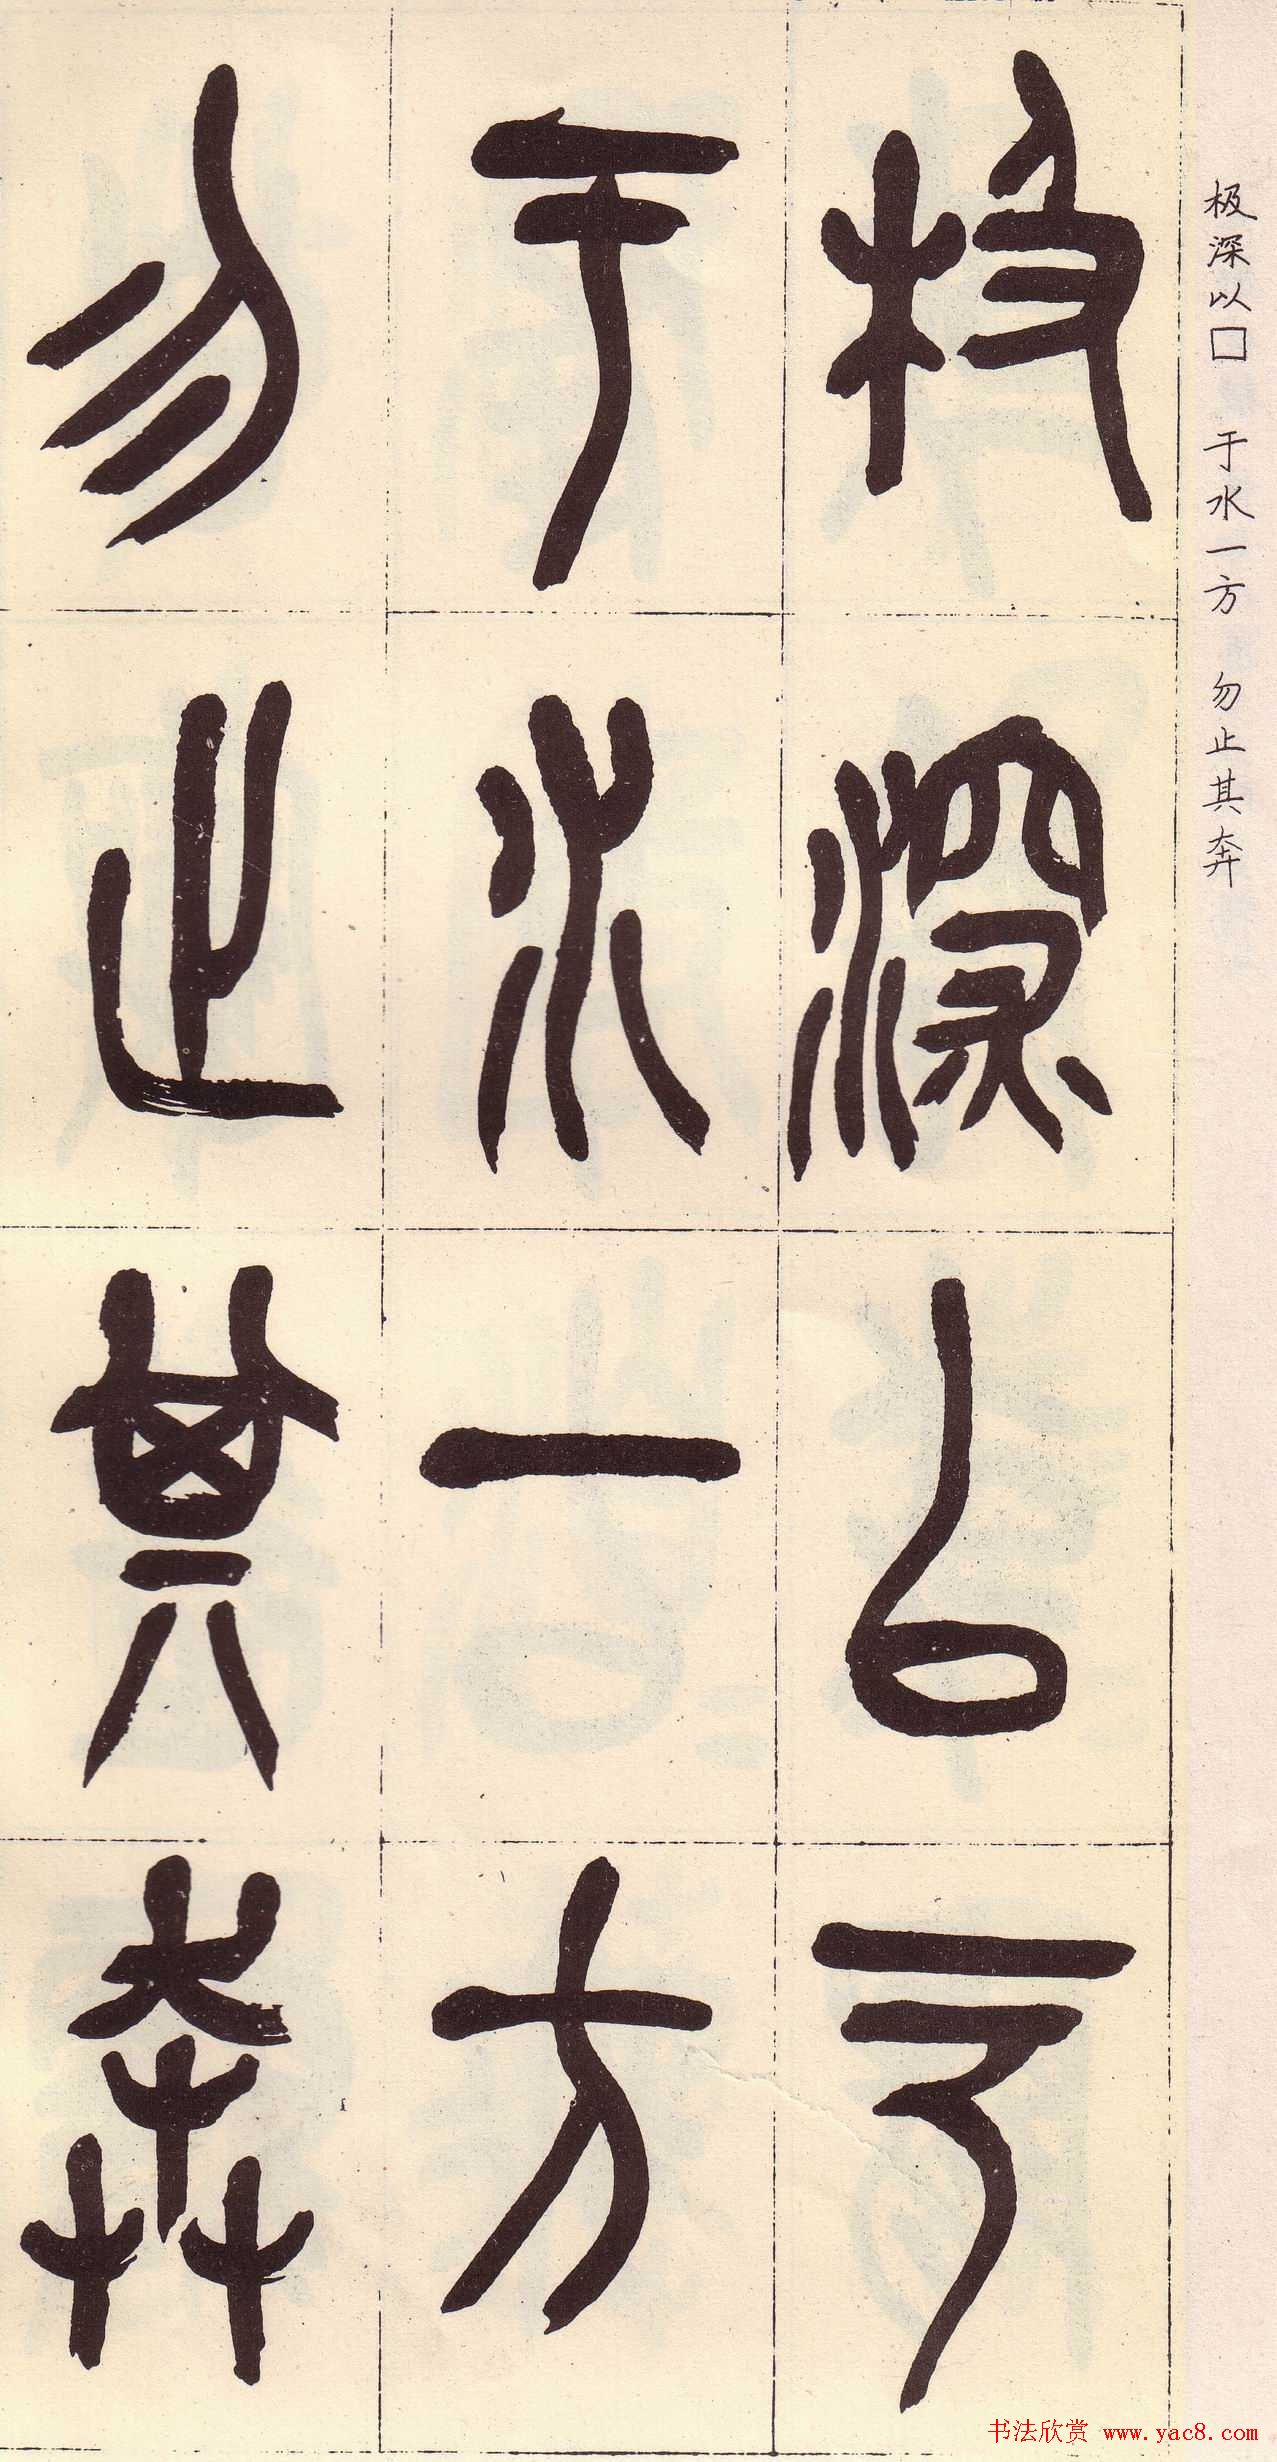 极深以□ 于水一方 勿止其奔
极深以
于水一方
勿止其奔
书法欣赏 www.yac8.com